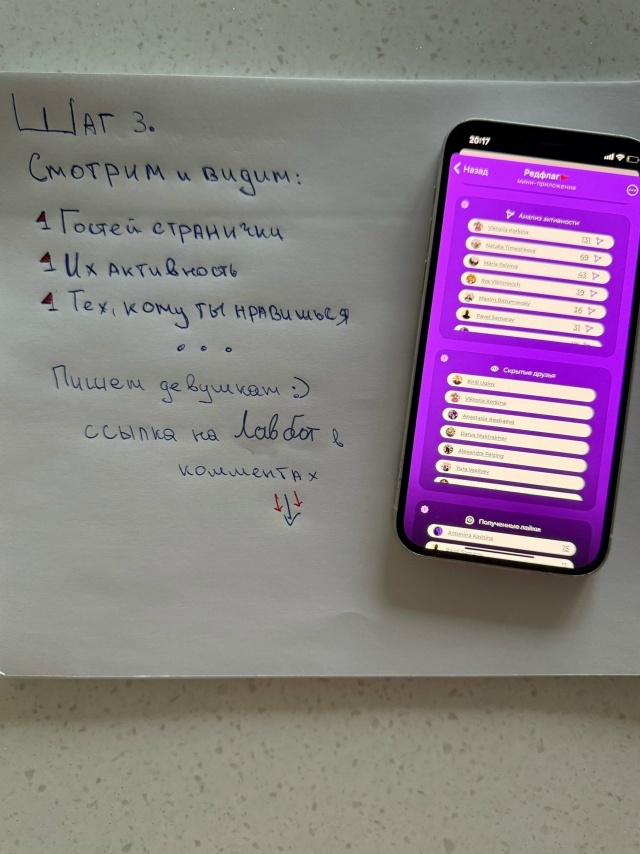 Шаг 3.
Смотрим и видим:
1 Гостей странички
1 Их активность
1 Тех, кому ты нравишься
...
Пишем девушкам :)
ссылка на Лавбот в
комментах
20:17
Назад
Редфлаг🚩
мини-приложение
Анализ активности
Viktoria Korkina 131
Natalia Timoshkova 69
Maria Falzing 43
Ilya Viktorovich 39
Maxim Razumovsky 36
Pavel Samarov 31
Скрытые друзья
Kirill Usatov
Viktoria Korkina
Anastasia
Darya
Alexandra Falzing
Yura Vasilyev
Полученные лайки
Antonina 75